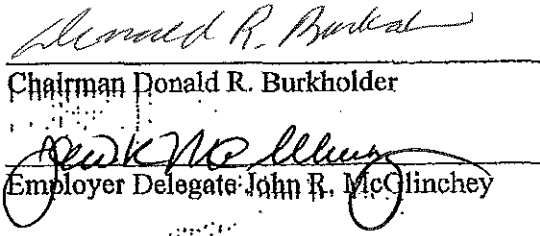 Donald R. Burkholder
Chairman Donald R. Burkholder
John R. McGlinchey
Employer Delegate John R. McGlinchey